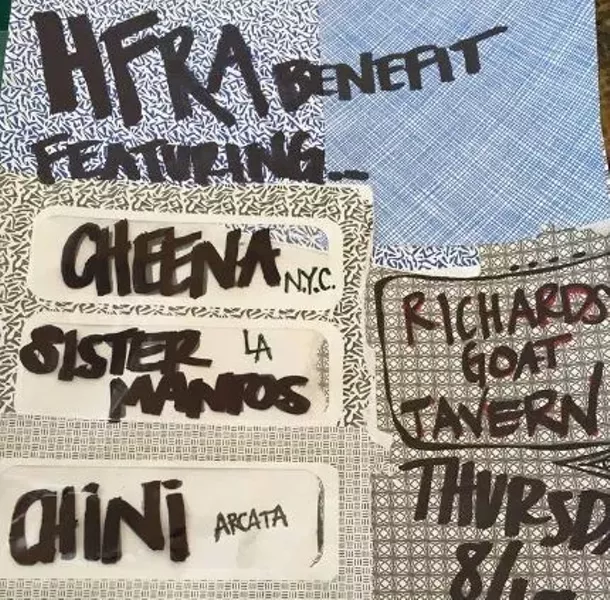 HFRA BENEFIT
FEATURING...
CHEENA N.Y.C.
SISTER LA
MANTOS
CHINI ARCATA
RICHARDS
GOAT
TAVERN
THURSDA
8/